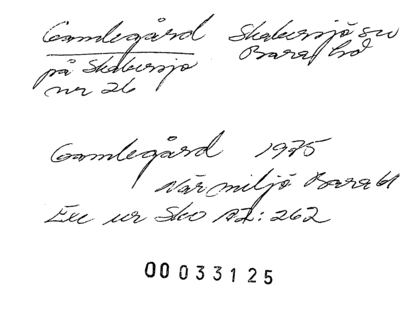 Gamlegård Skabersjö sn
på Skabersjö Bara hd
nr 26
Gamlegård 1975
Vår miljö Bara bl
Exc ur Sko A2: 262
00033125